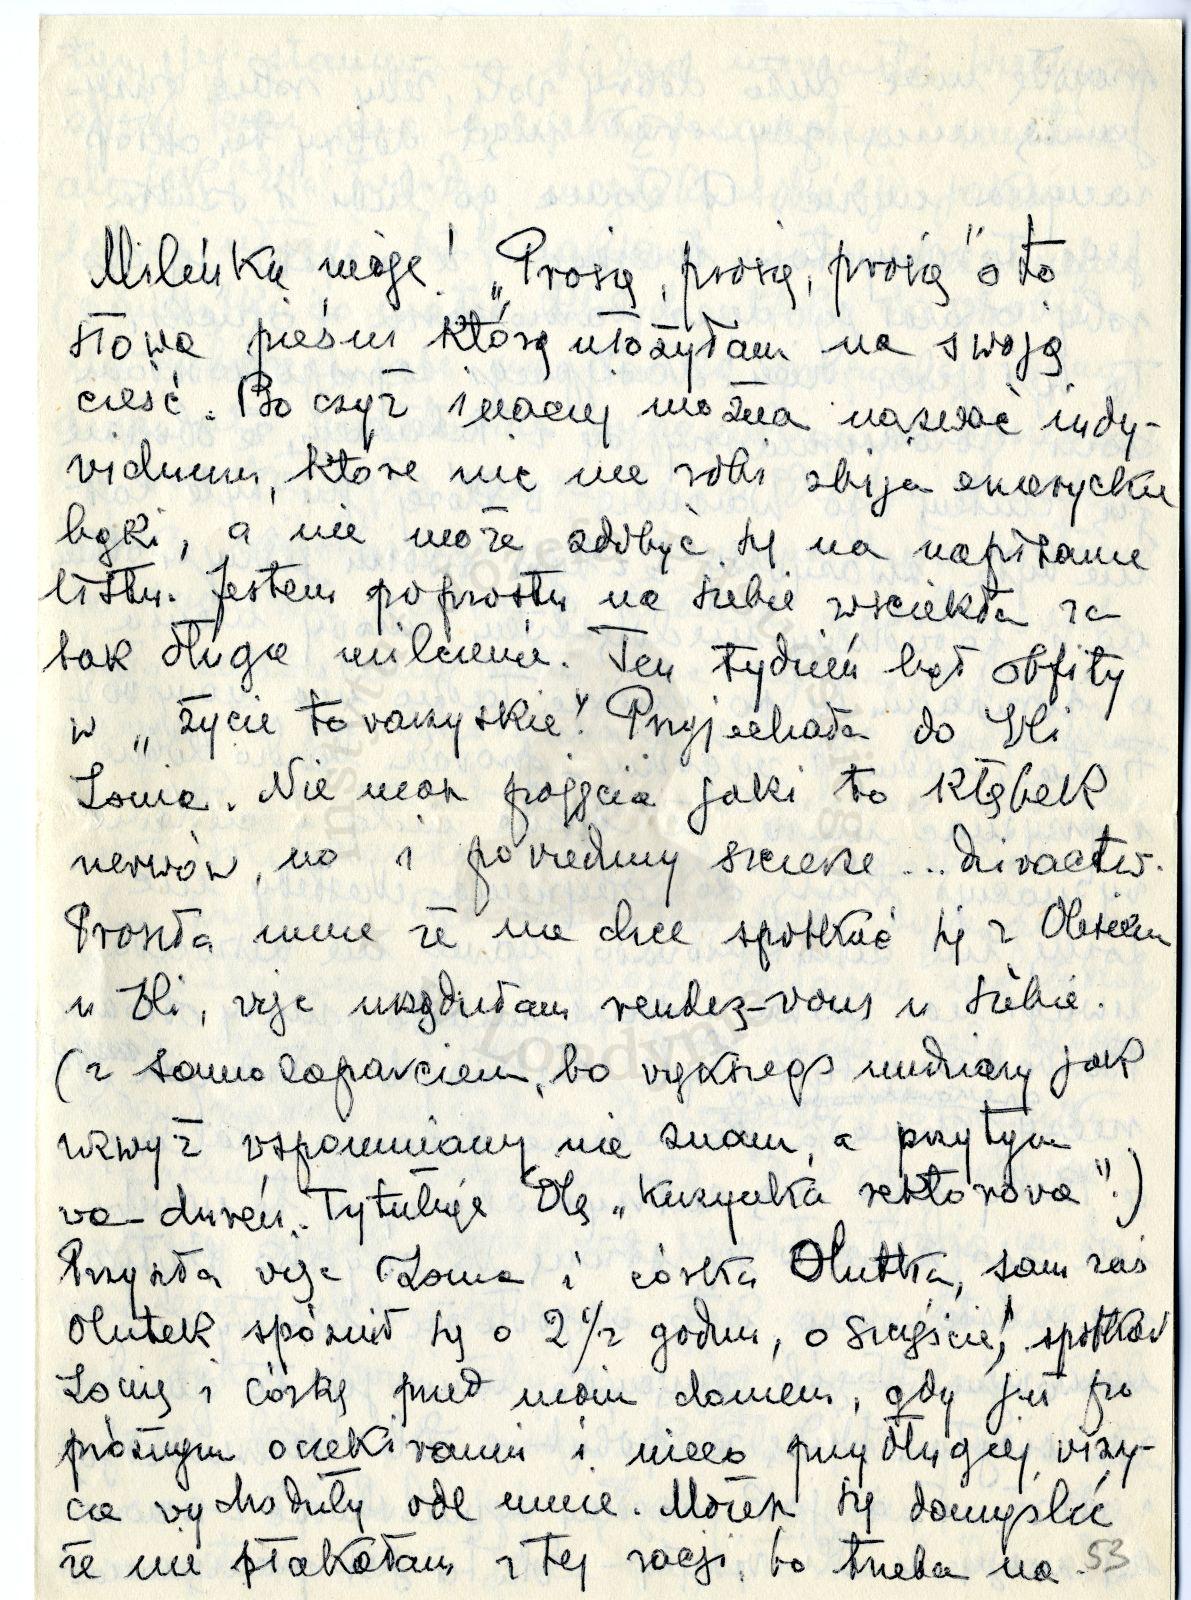 Mileńku moje! „Prosię, prosię, prosię" oto
słowa pieśni którą ułożyłam na swoją
cześć. Bo czyż inaczej można nazwać indy-
viduum, które nic nie robi zbija
bąki, a nie może zdobyć się na napisanie
listu. Jestem poprostu na siebie wściekła za
tak długie milczenie. Ten tydzień był obfity
w „życie tovarzyskie". Przyjechała do Uli
Lonia. Nie masz pojęcia jaki to kłębek
nerwów, no i poviedzmy szczerze... divactw.
Prosiła mnie że nie chce spotkać się z Olesiem
u Uli, więc urządziłam rendez-vous u siebie.
(z samozaparciem, bo vięKszego nudziarzy jak
wzwyż vspomniany nie znam, a przytym
va-dureń. Tytułuje Olę „Kuzynka rektorova".)
Przyszła vięc Lonia i córka Olutka, sam zaś
Olutek spóźnił się o 2 1/2 godzin, o szczęście! spotkał
Lonię i córkę przed moim domem, gdy już po
próżnym oczekivaniu i nieco przydługiej vizy-
cie vychodziły ode mnie. Możesz się domyśleć
że nie płakałam z tej racji, bo trzeba na
53
Instytut
Polski
Londynie